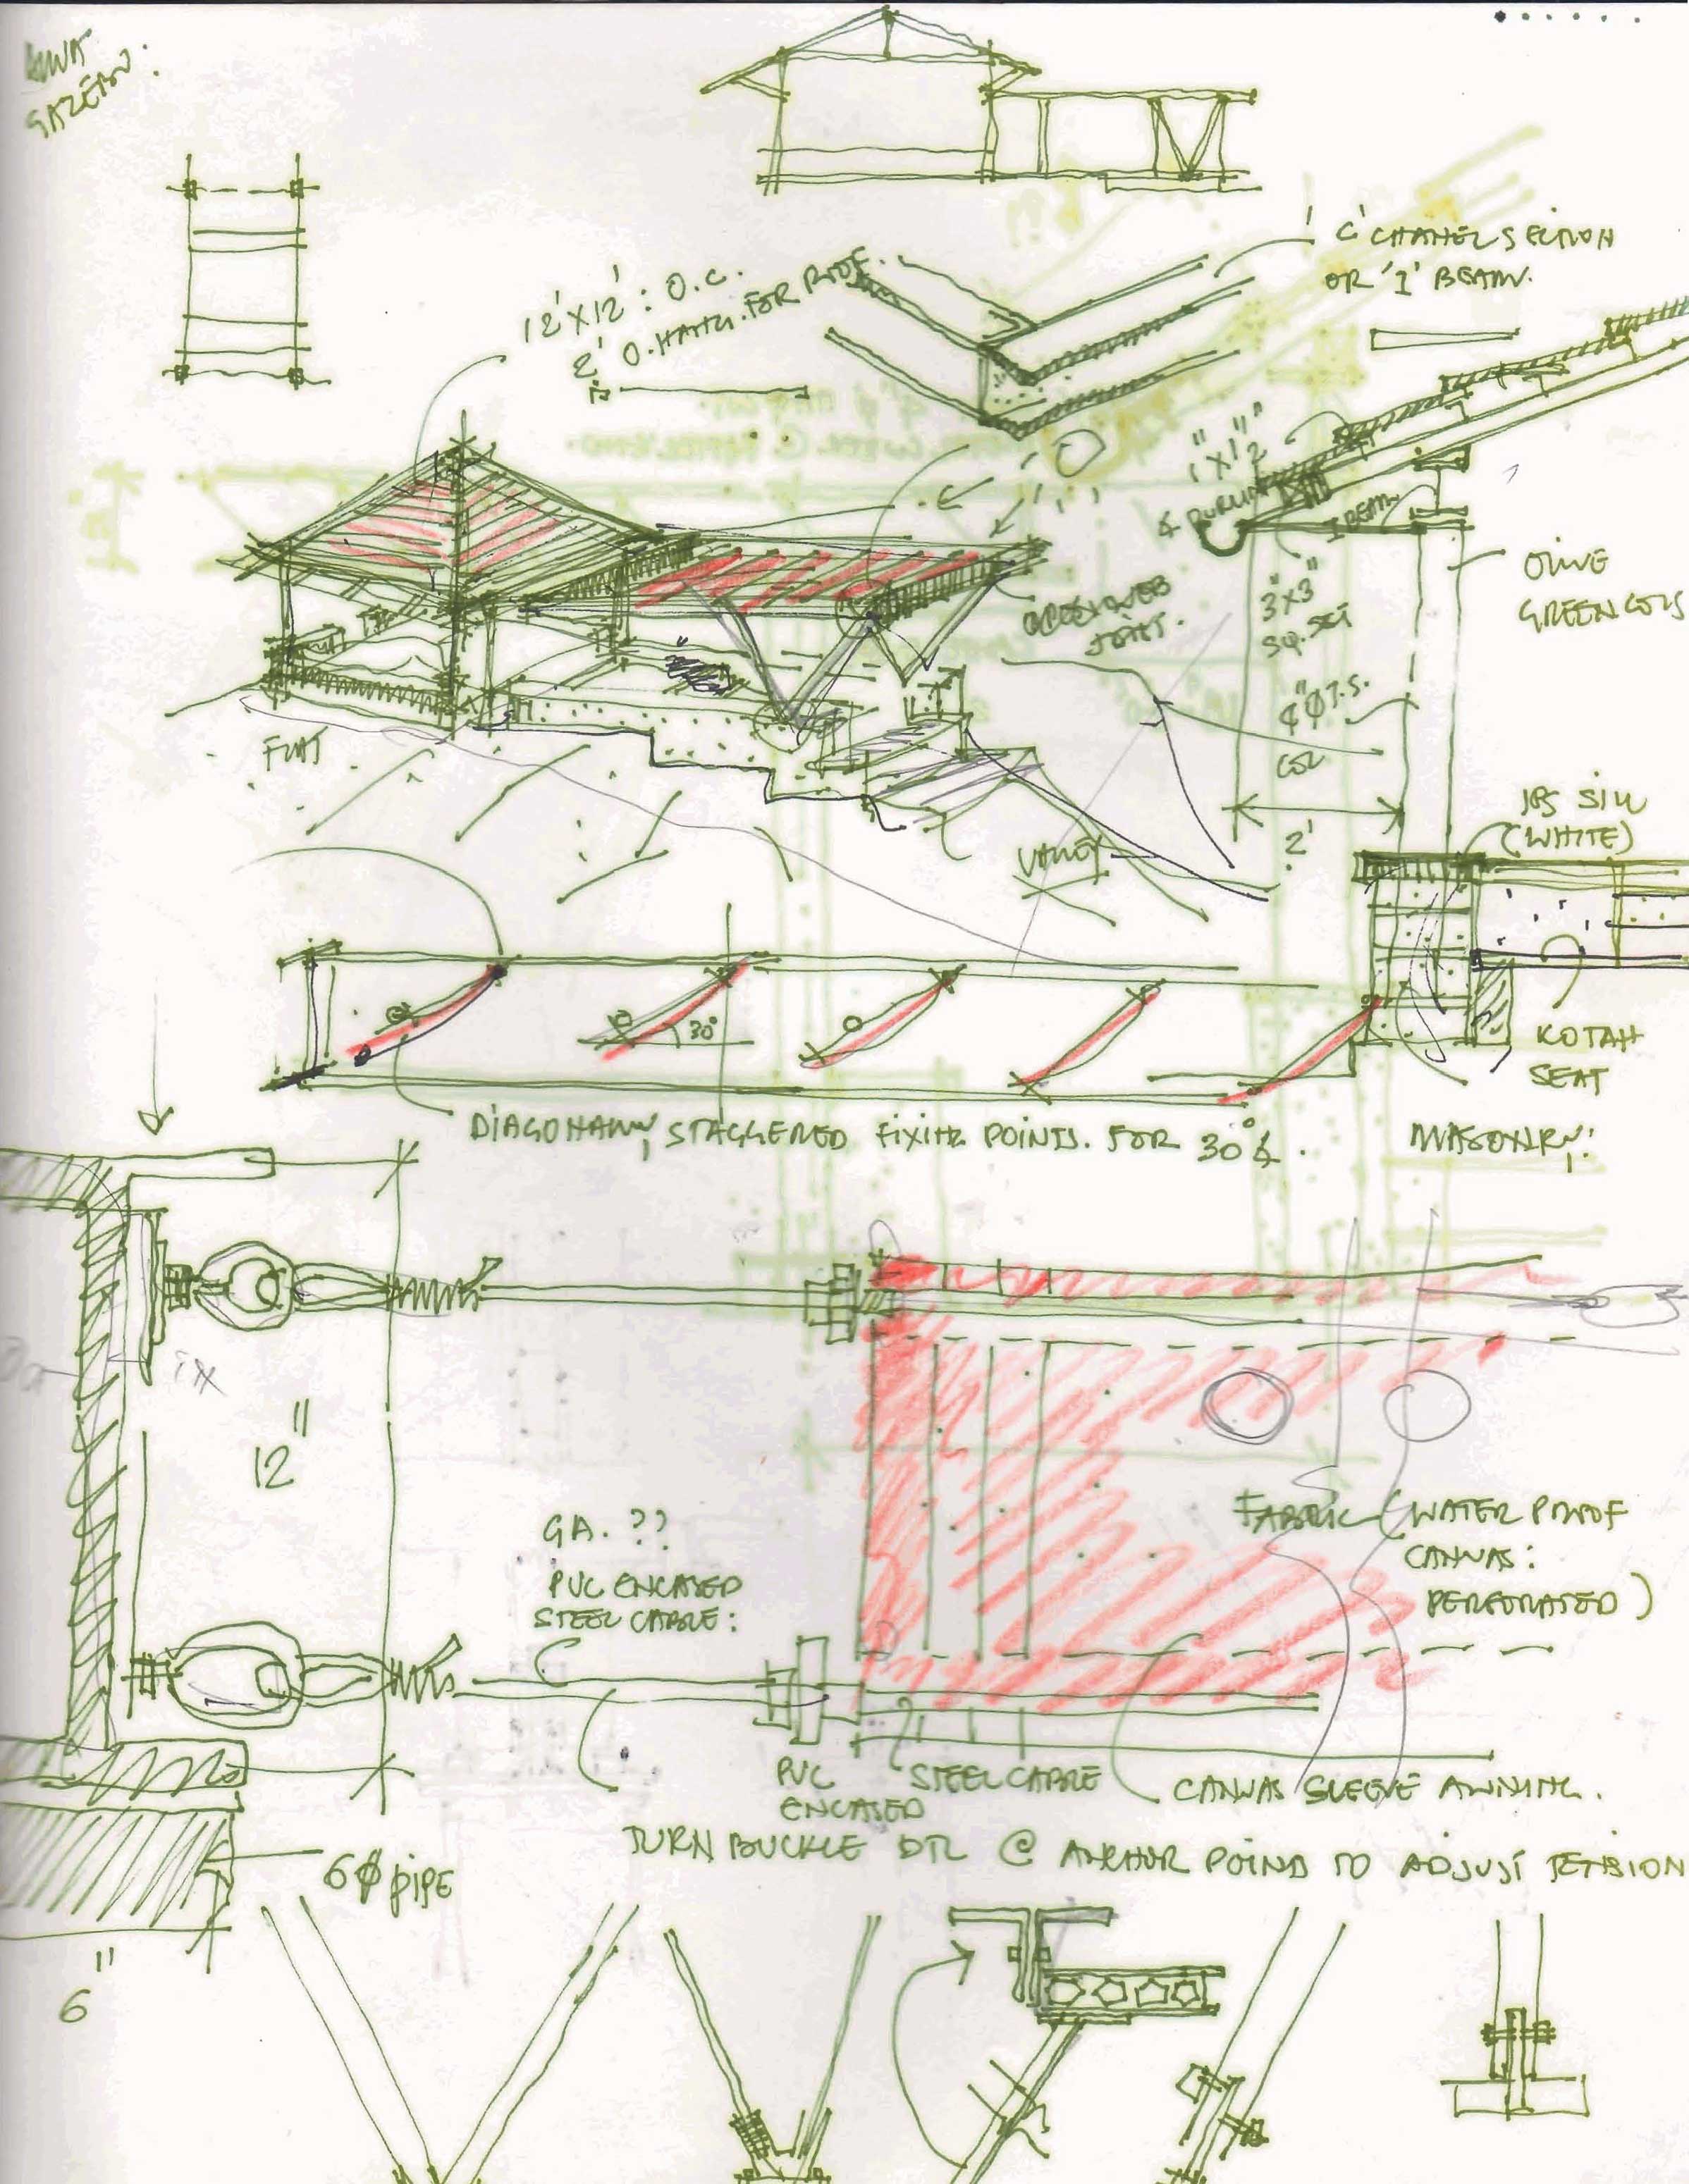 GAZEBO:
12'X12' : O.C.
2' O.HANG. FOR ROOF.
'C' CHANEL SECTION
OR 'I' BEAM.
1"X1½"
PURLIN
I BEAM
OLIVE
GREEN COLS
3"X3"
SQ. SEC
4"Ø T.S.
COL
OPEN WEB
JOIST.
FLAT
VALLEY
2'
IPS SILL
(WHITE)
KOTAH
SEAT
30°
DIAGONALLY STAGGERED FIXING POINTS. FOR 30°∡.
MASONRY:
FIX
12"
GA. ??
PVC ENCASED
STEEL CABLE:
FABRIC (WATER PROOF
CANVAS:
PERFORATED)
PVC
ENCASED
STEEL CABLE
CANVAS SLEEVE AWNING.
TURN BUCKLE DTL @ ANCHOR POINT TO ADJUST TENSION
6Ø PIPE
6"